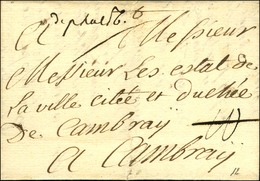 A Messieur
Messieur Les estat de
La ville citée et duchée
De Cambray
A Cambray